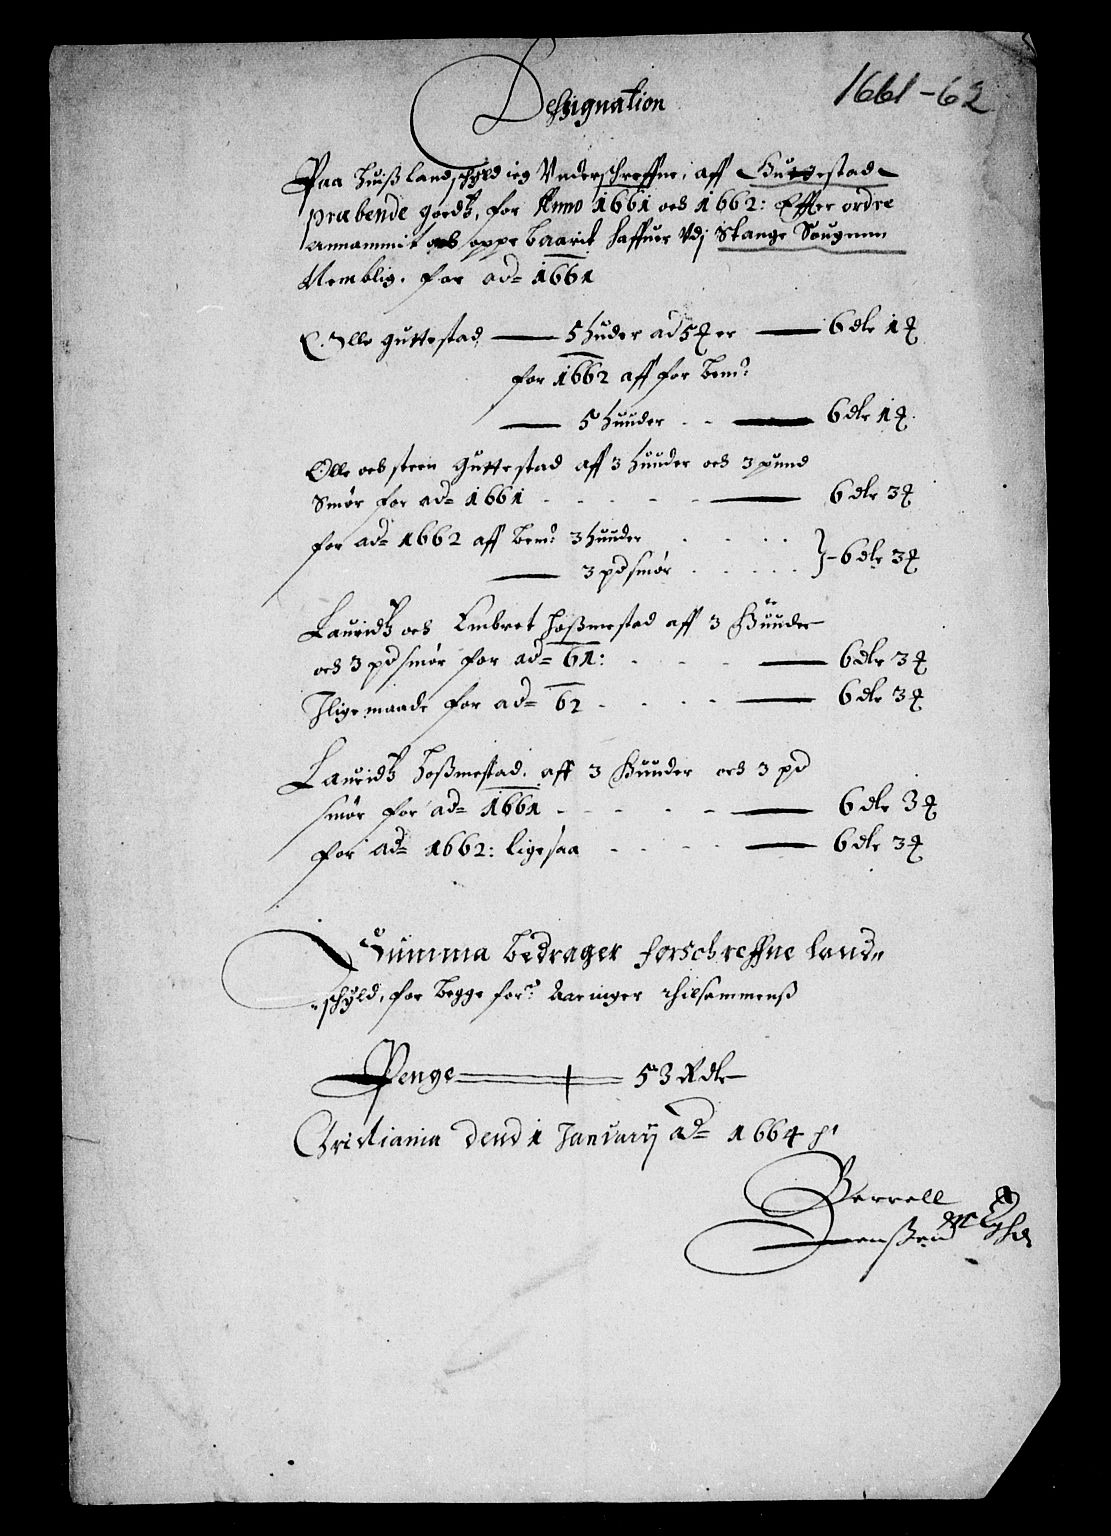 Designation
1661-62
Paa huiß landschyld ieg Underschreffne, aff Guttestad
præbende goedß, for Anno 1661 och 1662: Effter ordre
Annammit och oppebaarit haffuer udj Stange Sougenn
Nemblig. for ad= 1661
Olle Guttestad — 5 huder ad 5 # er — 6 dlr 1 #
for 1662 aff for bem:
— 5 huuder . . — 6 dlr 1 #.
Olle och steen Guttestad aff 3 huuder och 3 pund
Smør for ad= 1661 . . . . — 6 dlr 3 #
for ad= 1662 aff bem: 3 huuder . . . .
— 3 pd smør . . . . . } - 6 dlr 3 #
Lauridß och Embret Hoßmestad aff 3 Huuder
och 3 pd smør for ad= 61: . . . — 6 dlr 3 #
Jligemaade for ad= 62 . . . . — 6 dlr 3 #
Lauridß Hoßmestad. aff 3 Huuder och 3 pd
smør for ad= 1661 . . . . — 6 dlr 3 #
for ad= 1662: ligesaa . . . . — 6 dlr 3 #
Summa bedrager forschreffne land=
schyld, for begge for: Aaringer thilsammenß
Penge — 53 Rdlr
Cristiania dend 1 January ad= 1664
Jenßen